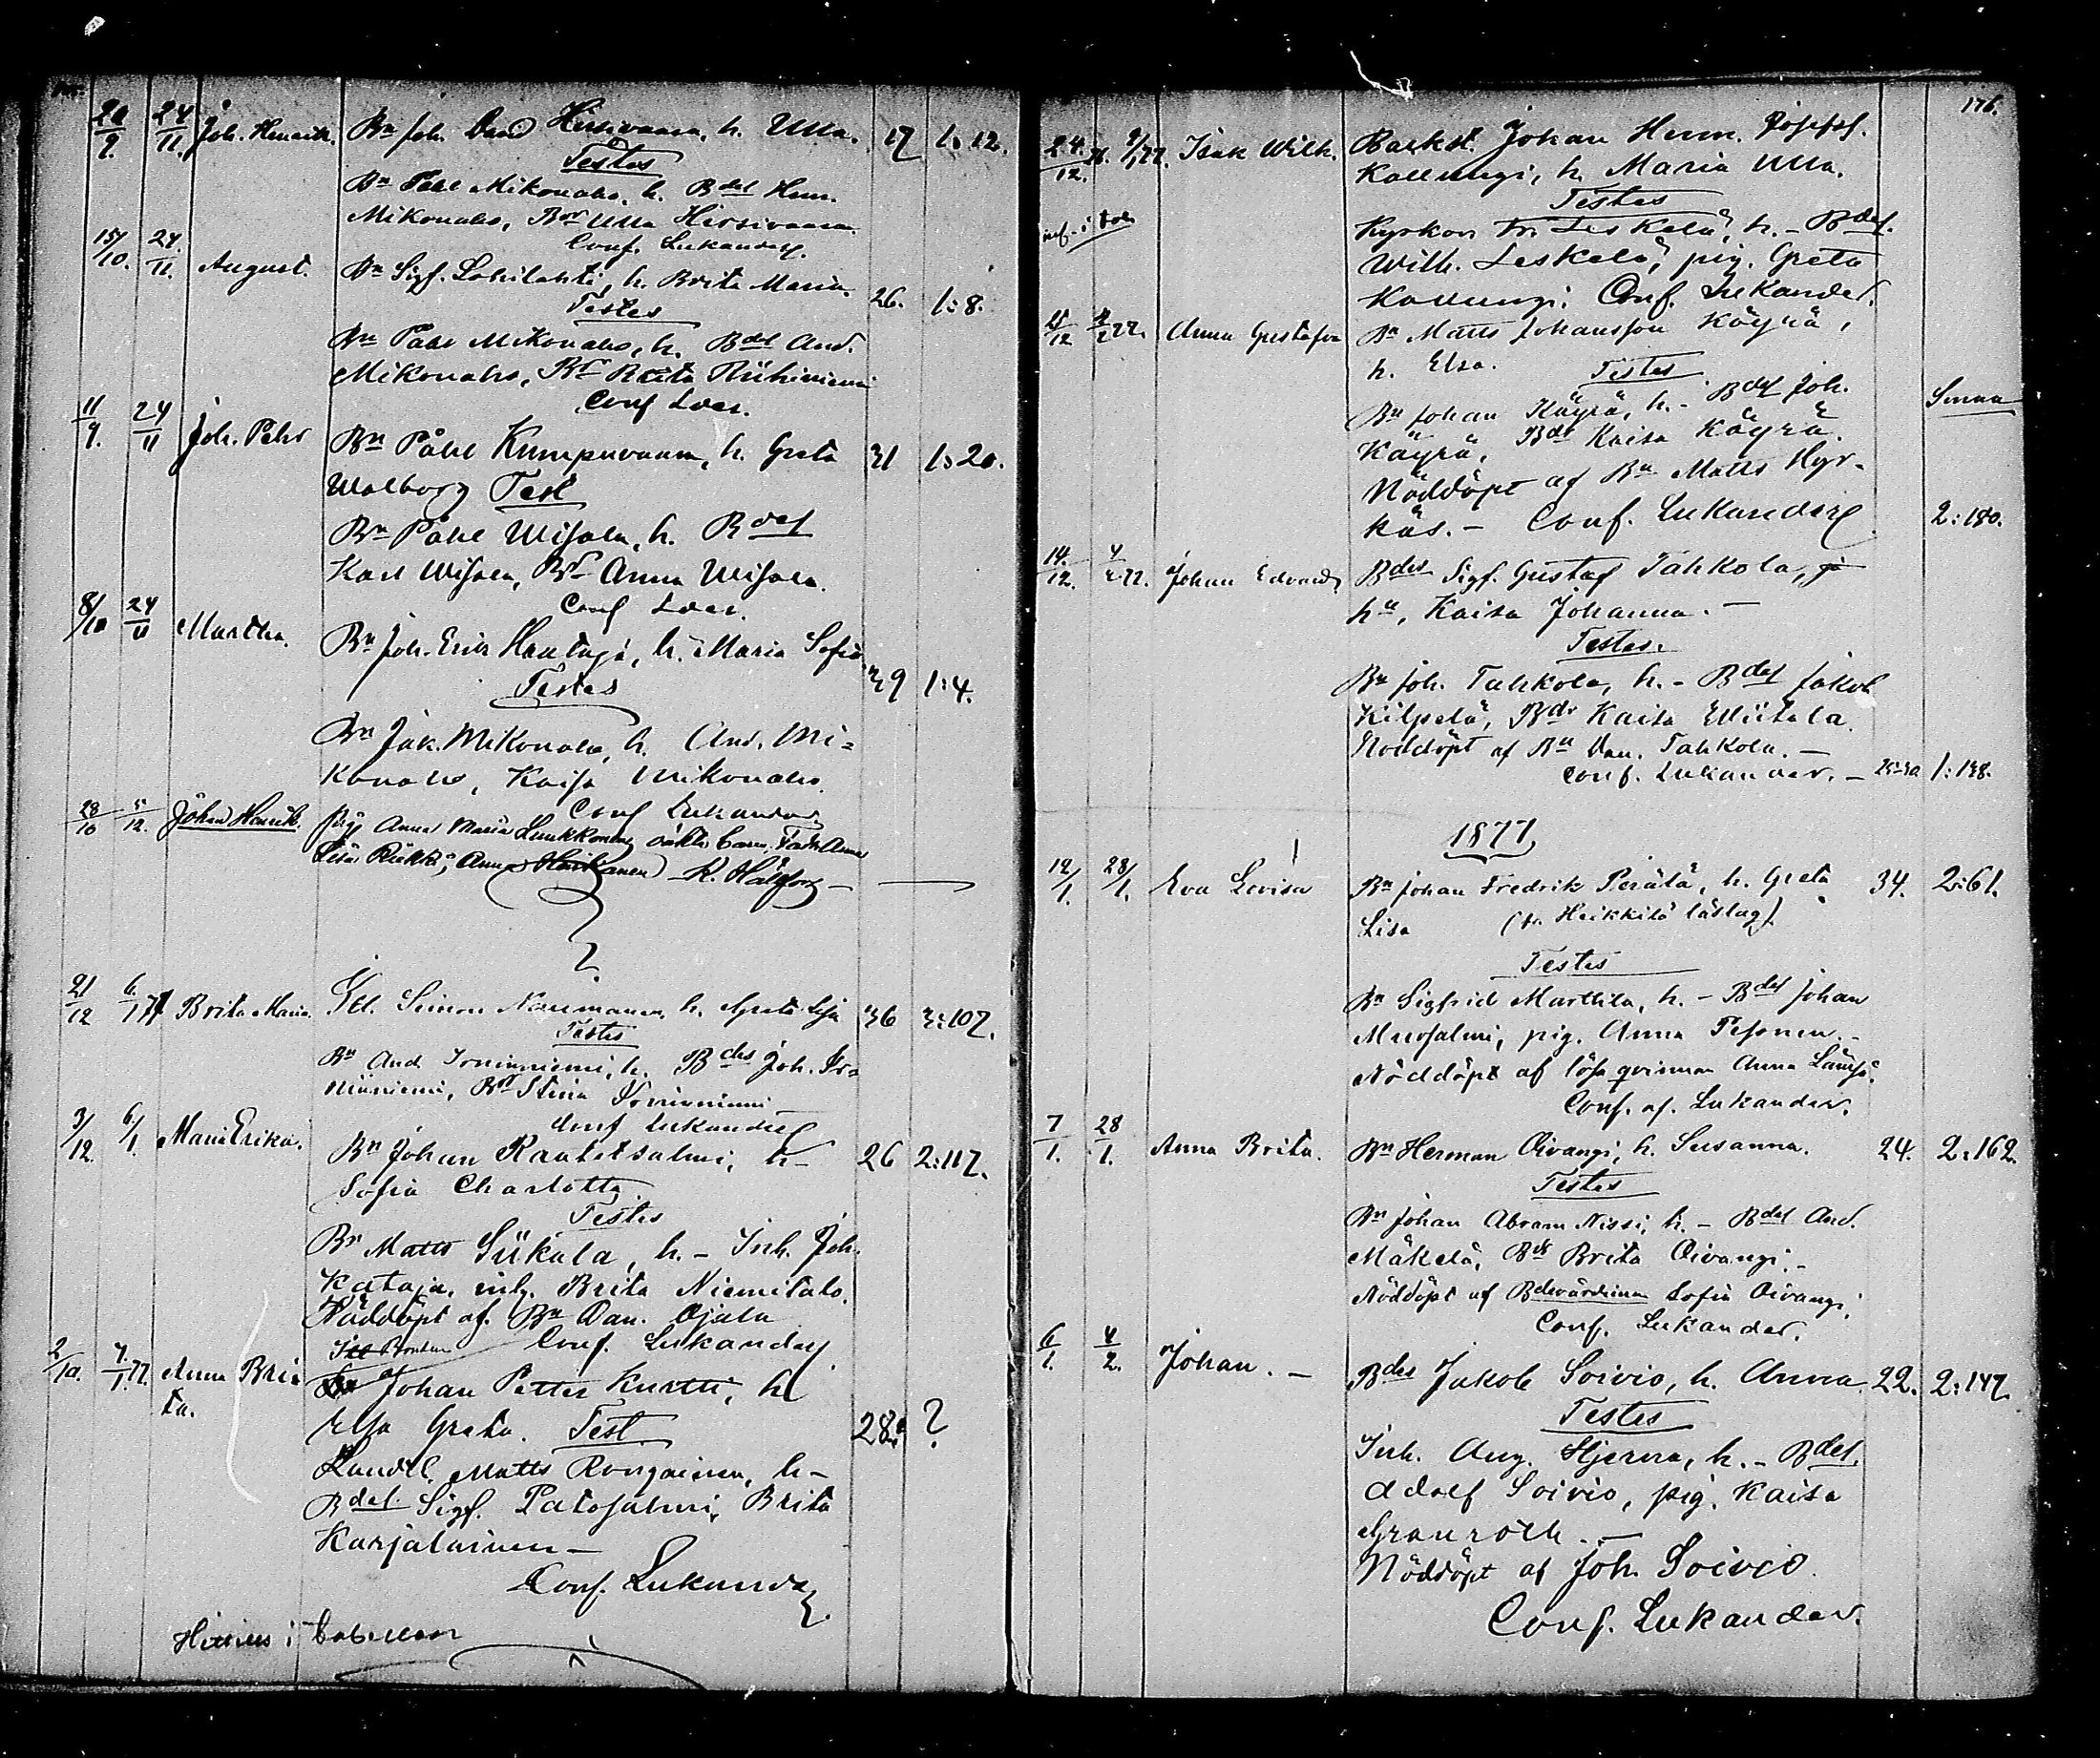 20/9. 24/11. Joh. Henrik. Bn Joh. Hirsivaara, h. Ulla. 17 1:12.
Testes
Bn Påhl Mikonaho, h. Bdes Hem.
Mikonaho, Bdr Ulla Hirsivaara.
Conf. Lukander.
15/10. 24/11. August. Bn Sigf. Lohilahti, h. Brita Maria. 26. 1:8.
Testes
Bn Påhl Mikonaho, h. Bdes And.
Mikonaho, Bdr Brita Riihiniemi
Conf Lder.
11/9. 24/11 Joh. Petr Bn Påhl Kumpuvaara, h. Greta 31 1:20.
Walborg Test
Bn Påhl Wisala, h. Bdes
Karl Wisala, Bdr Anna Wisala.
Conf Lder.
8/10 24/11 Martha. Bn Joh. Erik Hautaja, h. Maria Sofia 39 1:4.
Testes
Bn Jak. Mikonaho, h. And. Mi=
konaho, Kaisa Mikonaho.
Conf Lukander
28/10 5/12. Johan Henrik. Pig Anna Maria Luukkonen oäkta barn, Anna
Lisa Riekki, Anna K. Hällfors
?
21/12 6/1 77 Brita Maria. Simon Naumanen, h. Greta Lisa 36 3:107.
Testes
Bn And Irniniemi, h. Bdes Joh. Ir=
niniemi, Bdr Stina Irniniemi
Conf Lukander
3/12. 6/1. Maria Erika. Bn Johan Rautetsalmi, h- 26 2:117.
Sofia Charlotta
Testes
Bn Matts Siikala, h. - Inh. Joh.
Kataja, inh. Brita Niemitalo.
Nöddöpt af. Bn Dan. Ojala
Conf. Lukander
2/10. 7/1.77. Anna Bri= Johan Petter Kurtti, h
ta. Elsa Greta. Test. 28. ?
Landtl. Matts Rongainen, h-
Bdes. Sigf. Patosalmi, Brita
Karjalainen -
Conf. Lukander
Hittills i tabellen
176.
24/12. 76. 77. Isak Wilh. Backst. Johan Herm. Josefss.
Kallungi, h. Maria Ulla.
Testes
Kyrkov. Leskelä, h. - Bdes.
Wilh. Leskelä, pig. Greta
Kallungi. Conf. Lukander.
77. Anna Gustafva Bn Matts Johansson Käyrä,
h. Elsa. Testes
Bn Johan Käyrä, h. - Bdes Joh. Summa
Käyrä, Bdr Kaisa Käyrä.
Nöddöpt af Bn Matts Hyr-
käs. - Conf. Lukander 2:180.
14./12. 4/2 77. Johan Edvard Bdes Sigf. Gustaf Tahkola,
hu, Kaisa Johanna. -
Testes.
Bn Joh. Tahkola, h. - Bdes Jakob
Kilpelä, Bdr Kaisa Wiitala.
Nöddöpt af Bn Dan. Tahkola. -
Conf. Lukander. - 1:138.
1877
12/1. 28/1. Eva Lovisa Bn Johan Fredrik Perälä, h. Greta 34. 2:61.
Lisa (fr. Heikkilä läslag).
Testes
Bn Sigfrid Marttila, h. - Bdes Johan
Murtosalmi, pig. Anna Tesonen. -
Nöddöpt af lösa qvinnan Anna Lämsä.
Conf. af. Lukander.
7/1. 28/1. Anna Brita. Bn Herman Oivangi, h. Susanna. 24. 2:162.
Testes
Bn Johan Abram Nissi, h. - Bdes And.
Mäkelä, Bdr Brita Oivangi. -
Nöddöpt af Bdevärdinnan Sofia Oivangi.
Conf. Lukander.
6/1. 4/2. Johan. - Bdes Jakob Soivio, h. Anna. 22. 2:147.
Testes
Inh. Aug. Stjerna, h. - Bdes.
Adolf Soivio, pig. Kaisa
Granroth. -
Nöddöpt af Joh. Soivio.
Conf. Lukander.